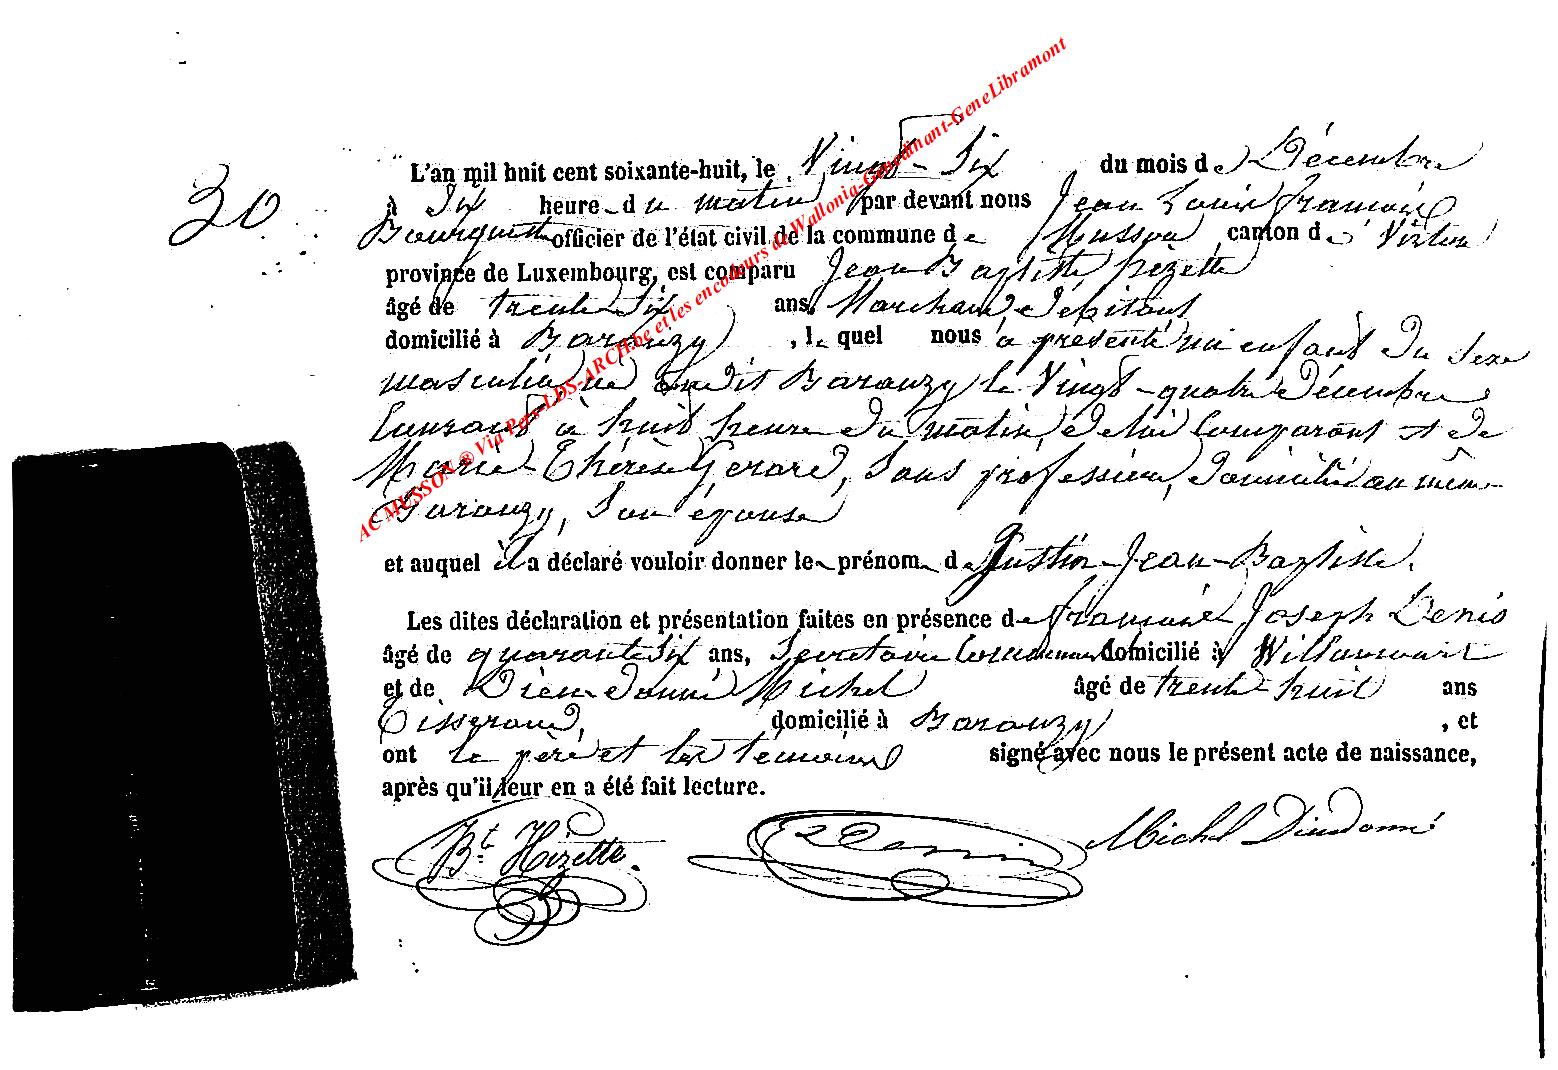 AC MUSSON ® Via Pers-LDS-ARCH.be et les encodeurs de Wallonia-Gondinant-GeneLibramont
30
L'an mil huit cent soixante-huit, le Vingt-Six du mois de Décembre
à Dix heure du matin par devant nous Jean Louis François
Bourguet officier de l'état civil de la commune de Musson canton de Virton
province de Luxembourg, est comparu Jean Baptiste hizette
âgé de trente Six ans, Marchand Débitant
domicilié à Baranzy, le quel nous a présenté un enfant du sexe
masculin, né audit Baranzy le Vingt-quatre Décembre
Courant à huit heure du matin, de lui Comparant et de
Marie-Thérèse Gerard, Sans profession, domiciliée au même
Baranzy, Son épouse
et auquel il a déclaré vouloir donner le prénom de Justin-Jean-Baptiste.
Les dites déclaration et présentation faites en présence de François Joseph Denis
âgé de quarante Six ans, Secretaire Communal domicilié à Willancourt
et de Dieu-donné Michel âgé de trente-huit ans
Tisserand, domicilié à Baranzy, et
ont le père et les temoins signé avec nous le présent acte de naissance,
après qu'il leur en a été fait lecture.
Bt. Hizette. Denis Michel Dieudonné